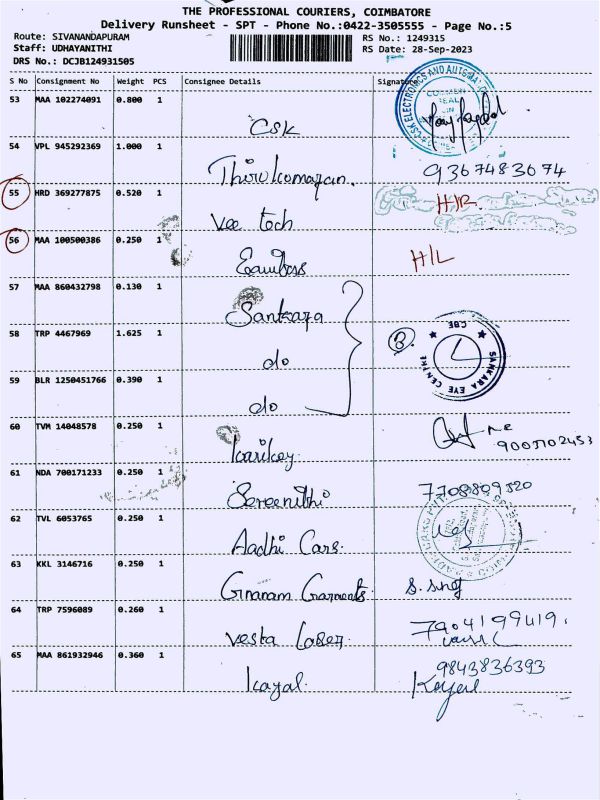 THE PROFESSIONAL COURIERS, COIMBATORE
Delivery Runsheet - SPT - Phone No.:0422-3505555 - Page No.:5
Route: SIVANANDAPURAM
RS No.: 1249315
Staff: UDHAYANITHI
RS Date: 28-Sep-2023
DRS No.: DCJB124931505
S No Consignment No Weight PCS Consignee Details Signature
53 MAA 102274091 0.800 1
CSK
54 VPL 945292369 1.000 1
Thirukumaran. 9367483674
55 HRD 369277875 0.520 1
H/R
Vee tech
56 MAA 100500386 0.250 1
H/L
57 MAA 860432798 0.130 1
Sankara
58 TRP 4467969 1.625 1
do
SANKARA EYE CENTRE
CBE
59 BLR 1250451766 0.390 1
do
60 TVM 14048578 0.250 1
9003102453
61 NDA 700171233 0.250 1
Sereenithi 7708809320
62 TVL 6053765 0.250 1
Aadhi Cars.
63 KKL 3146716 0.250 1
Gnanam Garments S. Sing
64 TRP 7596089 0.260 1
Vesta Laser 7904199419.
65 MAA 861932946 0.360 1
9843836393
Kayal. Kayal